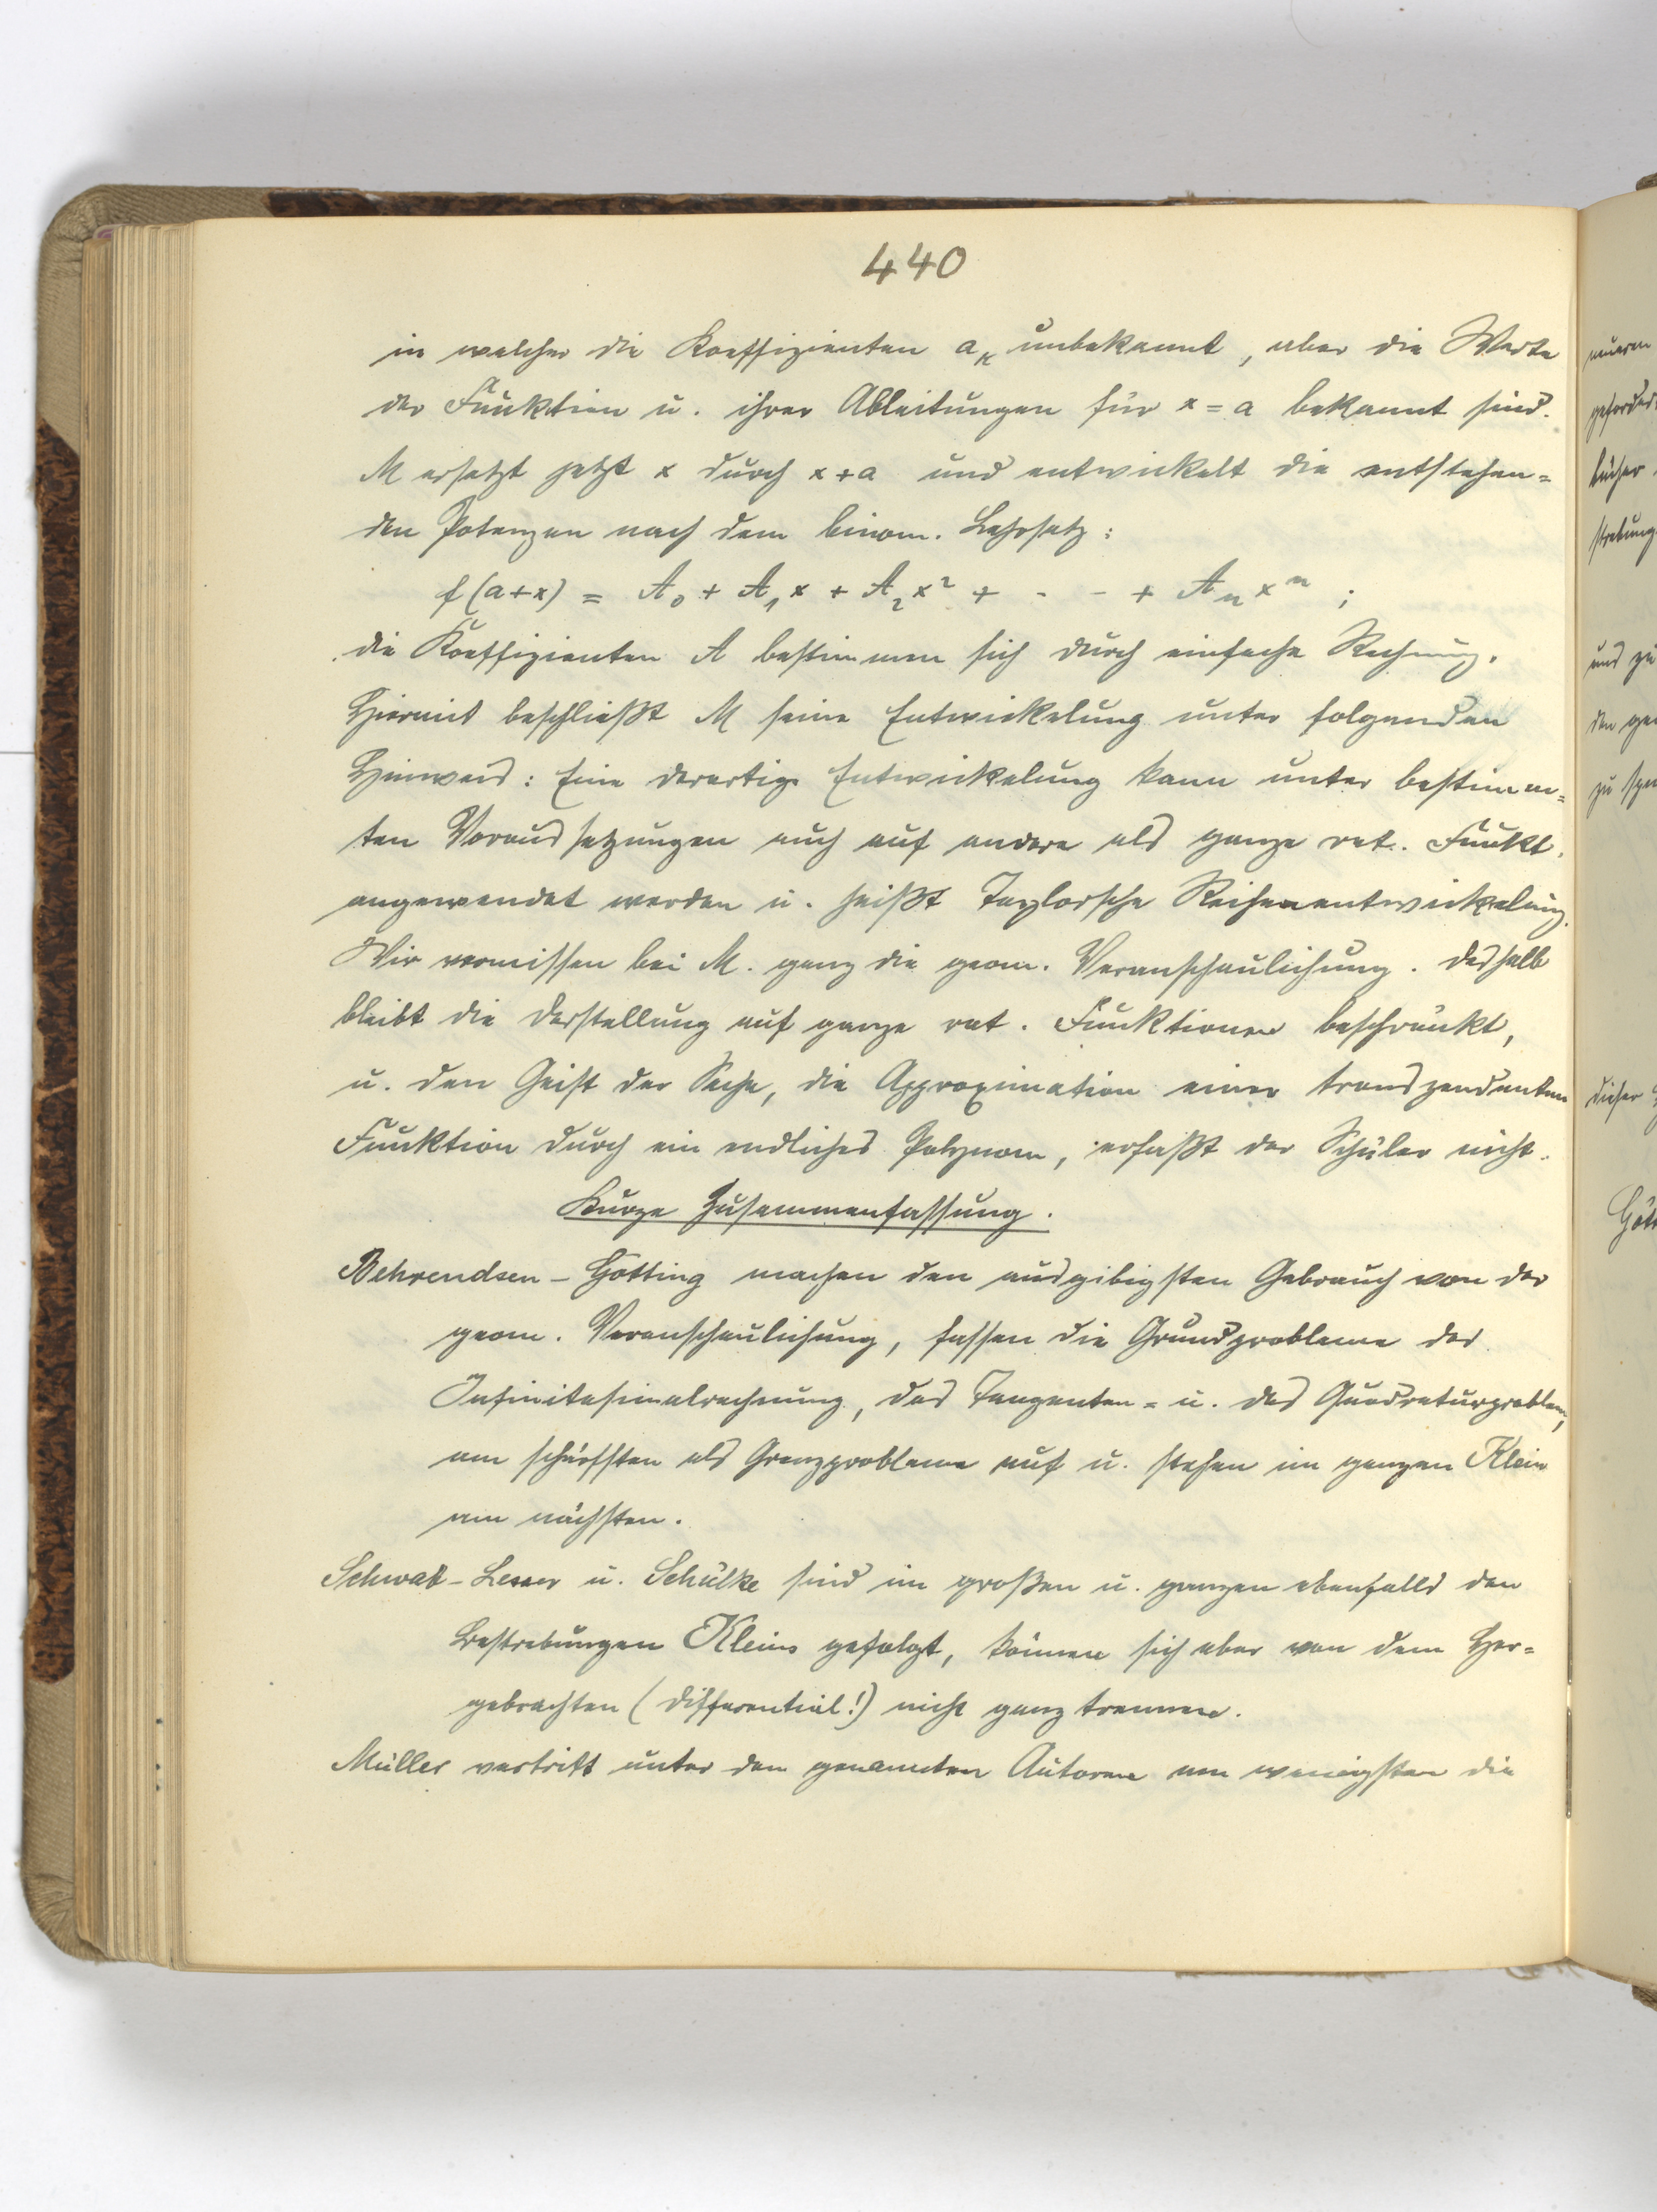 440
in welcher die Koeffizienten aₖ unbekannt, aber die Werte
der Funktion u. ihrer Ableitungen für x = a bekannt sind.
M ersetzt jetzt x durch x+a und entwickelt die entstehen=
den Potenzen nach dem binom. Lehrsatz:
f(a+x) = A₀ + A₁x + A₂x² + - - + Aₙxⁿ ;
die Koeffizienten A bestimmen sich durch einfache Rechnung.
Hiermit beschließt M seine Entwickelung unter folgenden
Hinweis: Eine derartige Entwickelung kann unter bestimm=
ten Voraussetzungen auch auf andere als ganze rat. Funkt.
angewendet werden u. heißt Taylorsche Reihenentwickelung.
Wir vermissen bei M. ganz die geom. Veranschaulichung. Deshalb
bleibt die Darstellung auf ganze rat. Funktionen beschränkt,
u. den Geist der Sache, die Approximation einer transzendenten
Funktion durch ein endliches Polynom, erfaßt der Schüler nicht.
Kurze Zusammenfassung.
Behrendsen - Götting machen den ausgibigsten Gebrauch von der
geom. Veranschaulichung, fassen die Grundprobleme der
Infinitesimalrechnung, das Tangenten= u. das Quadraturproblem,
am schärfsten als Grenzprobleme auf u. stehen im ganzen Klein
am nächsten.
Schwab - Lesser u. Schülke sind im großen u. ganzen ebenfalls den
Bestrebungen Kleins gefolgt, können sich aber von dem Her=
gebrachten (Differential!) nicht ganz trennen.
Müller vertritt unter den genannten Autoren am wenigsten die